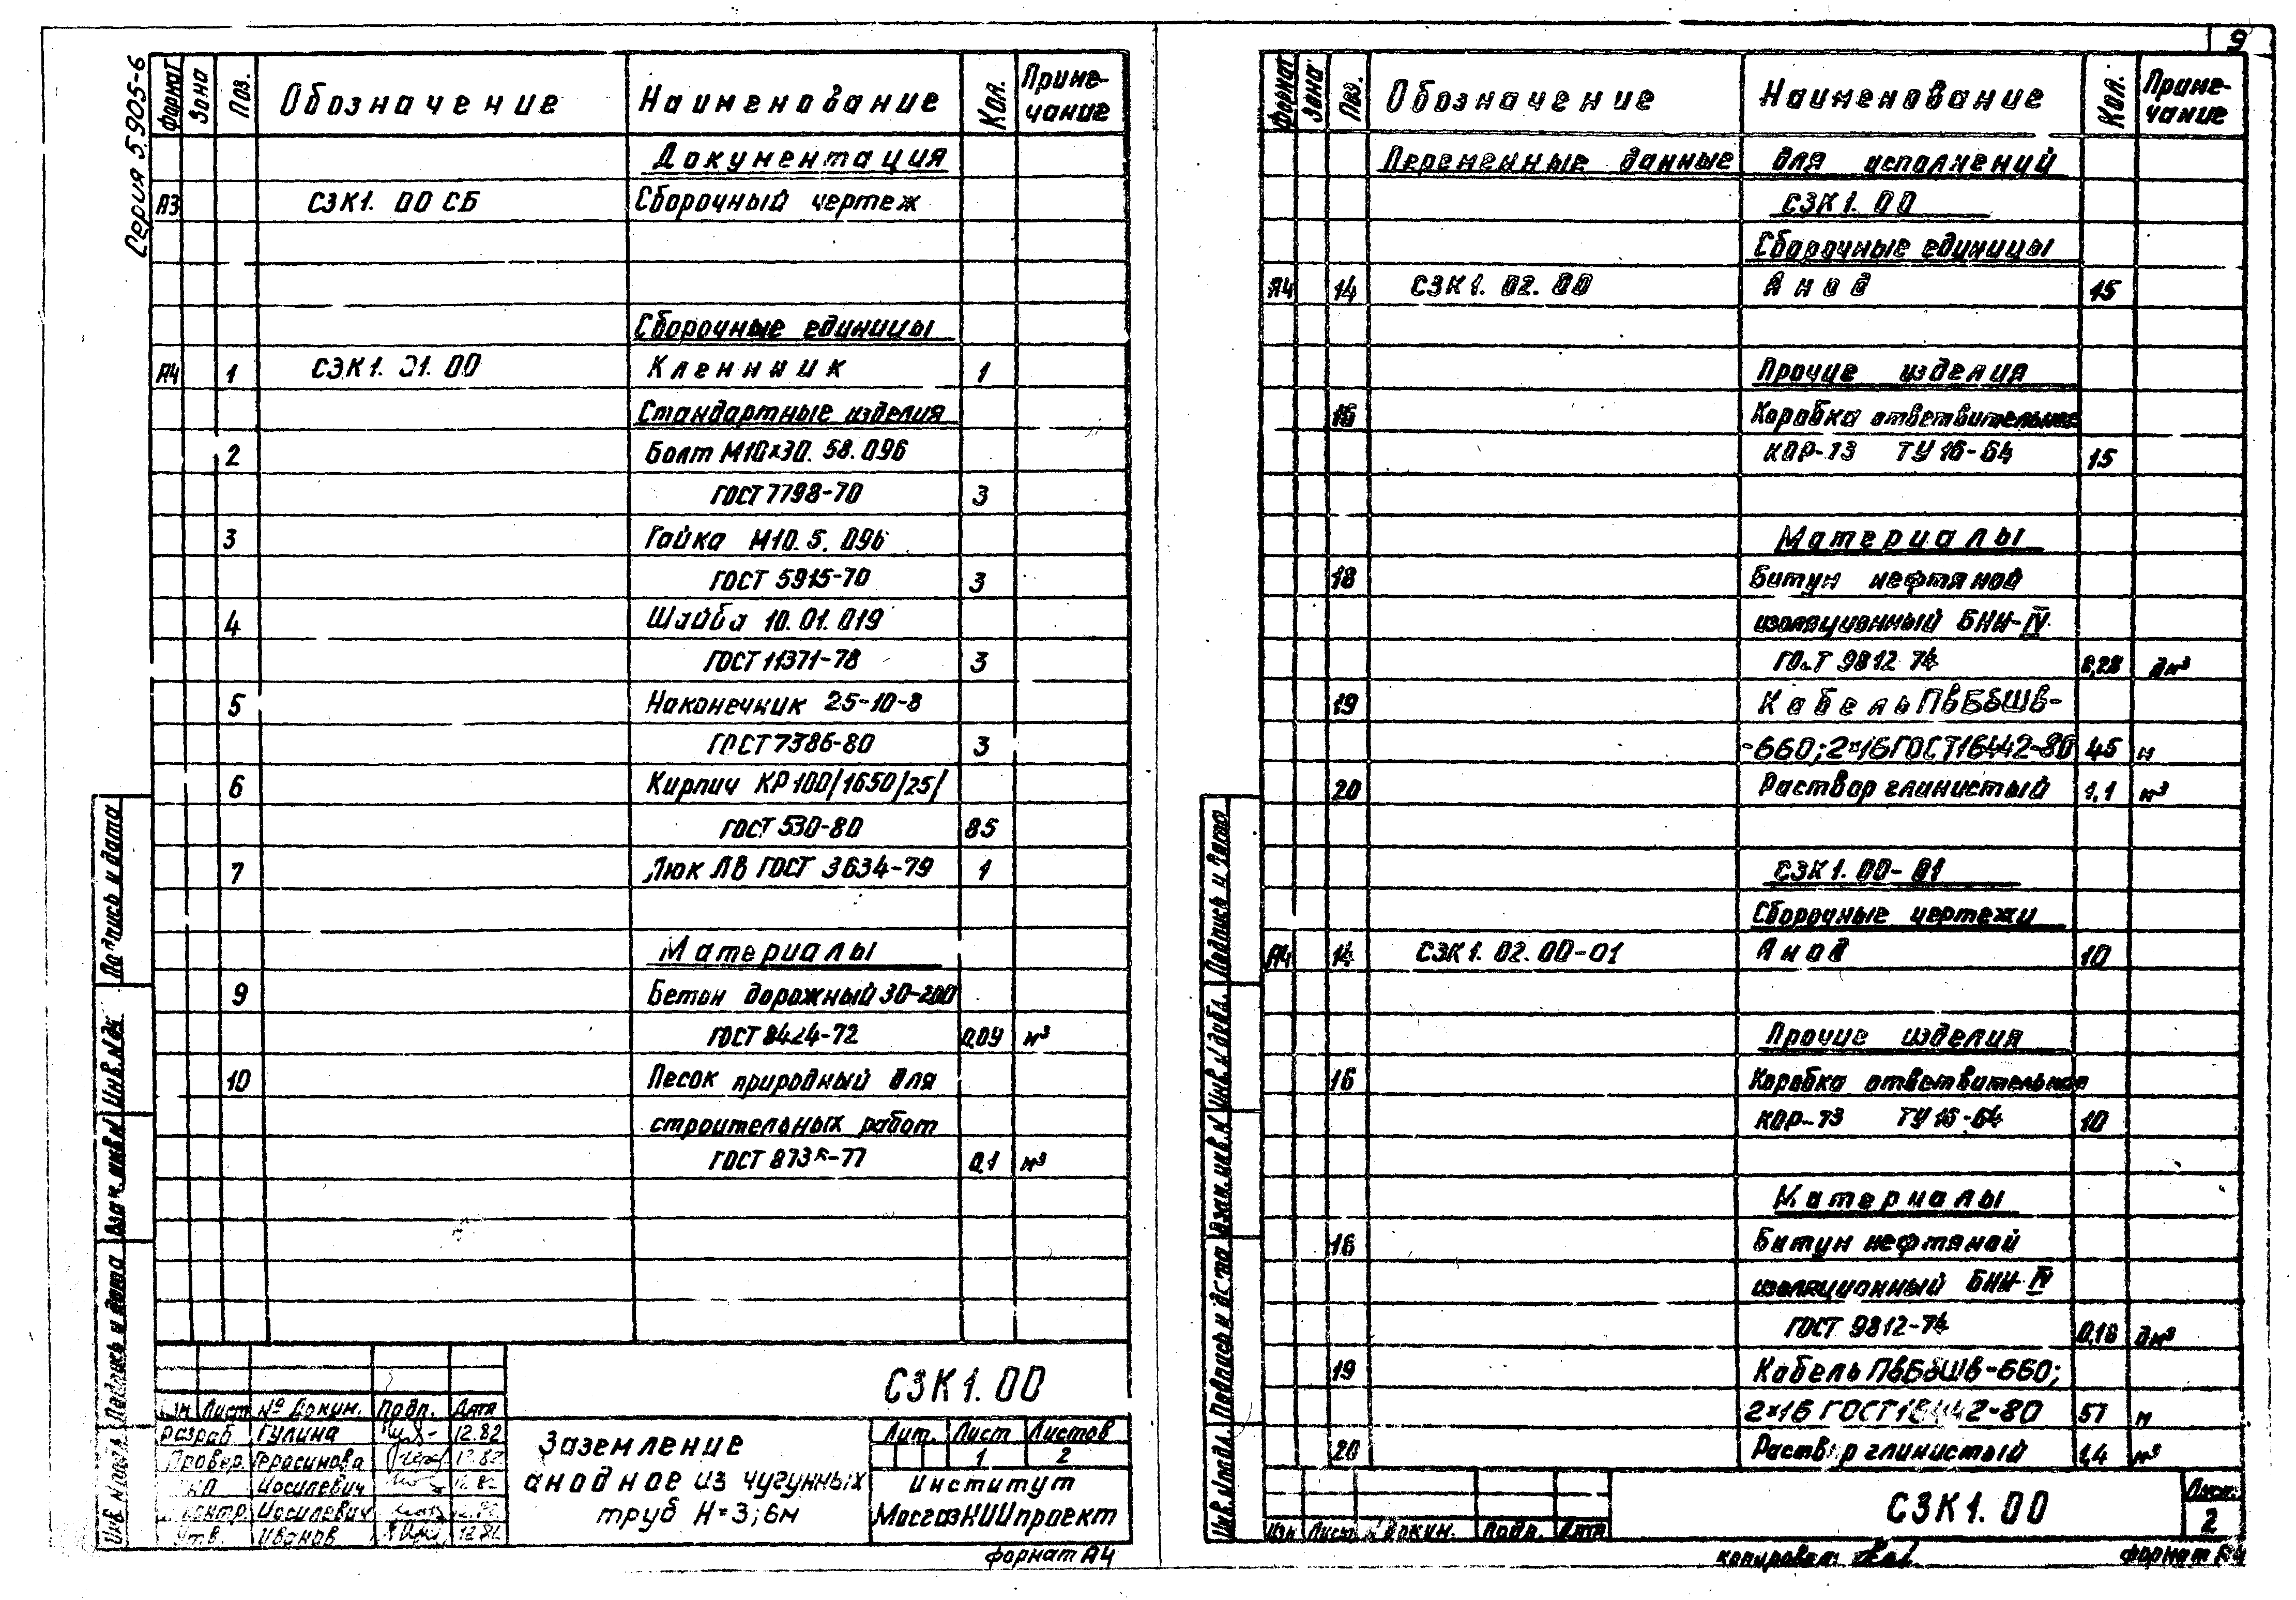 9
Серия 5.905-6
Формат Зона Поз. Обозначение Наименование Кол. Приме-
чание
Документация
А3 СЗК1. 00 СБ Сборочный чертеж
Сборочные единицы
А4 1 СЗК1. 01. 00 Клеммник 1
Стандартные изделия
2 Болт М10×30. 58. 096
ГОСТ 7798-70 3
3 Гайка М10. 5. 096
ГОСТ 5915-70 3
4 Шайба 10. 01. 019
ГОСТ 11371-78 3
5 Наконечник 25-10-8
ГОСТ 7386-80 3
6 Кирпич КР100/1650/25/
ГОСТ 530-80 85
7 Люк ЛВ ГОСТ 3634-79 1
Материалы
9 Бетон дорожный 30-200
ГОСТ 8424-72 0,04 м³
10 Песок природный для
строительных работ
ГОСТ 8736-77 0,1 м³
СЗК1. 00
Изм Лист № Докум. Подп. Дата
Разраб Гулина 12.82
Провер. Герасимова 12.82
Иосилевич
контр Иосилевич
Утв. Иванов 12.82
Заземление
анодное из чугунных
труб Н=3; 6м
Лит. Лист Листов
1 2
Институт
МосгазНИИпроект
формат А4
Подпись и дата
Взам. инв. №
Подпись и дата
Инв. № подл.
Формат Зона Поз. Обозначение Наименование Кол. Приме-
чание
Переменные данные для исполнений
СЗК1. 00
Сборочные единицы
А4 14 СЗК1. 02. 00 Анод 15
Прочие изделия
16 Коробка ответвительная
КОР-73 ТУ 16-64 15
Материалы
18 Битум нефтяной
изоляционный БНИ-IV
ГОСТ 9812 74 0,28 дм³
19 Кабель ПвБбШв-
-660; 2×16 ГОСТ 16442-80 45 м
20 Раствор глинистый 1,1 м³
СЗК1. 00-01
Сборочные чертежи
А4 14 СЗК1. 02. 00-01 Анод 10
Прочие изделия
16 Коробка ответвительная
КОР-73 ТУ 16-64 10
Материалы
18 Битум нефтяной
изоляционный БНИ-IV
ГОСТ 9812-74 0,18 дм³
19 Кабель ПвБбШв-660;
2×16 ГОСТ 16442-80 57 м
20 Раствор глинистый 1,4 м³
Изм Лист № Докум. Подп. Дата
СЗК1. 00
Лист
2
копировал:
формат А4
Подпись и дата
Инв. № дубл.
Взам. инв. №
Подпись и дата
Инв. № подл.